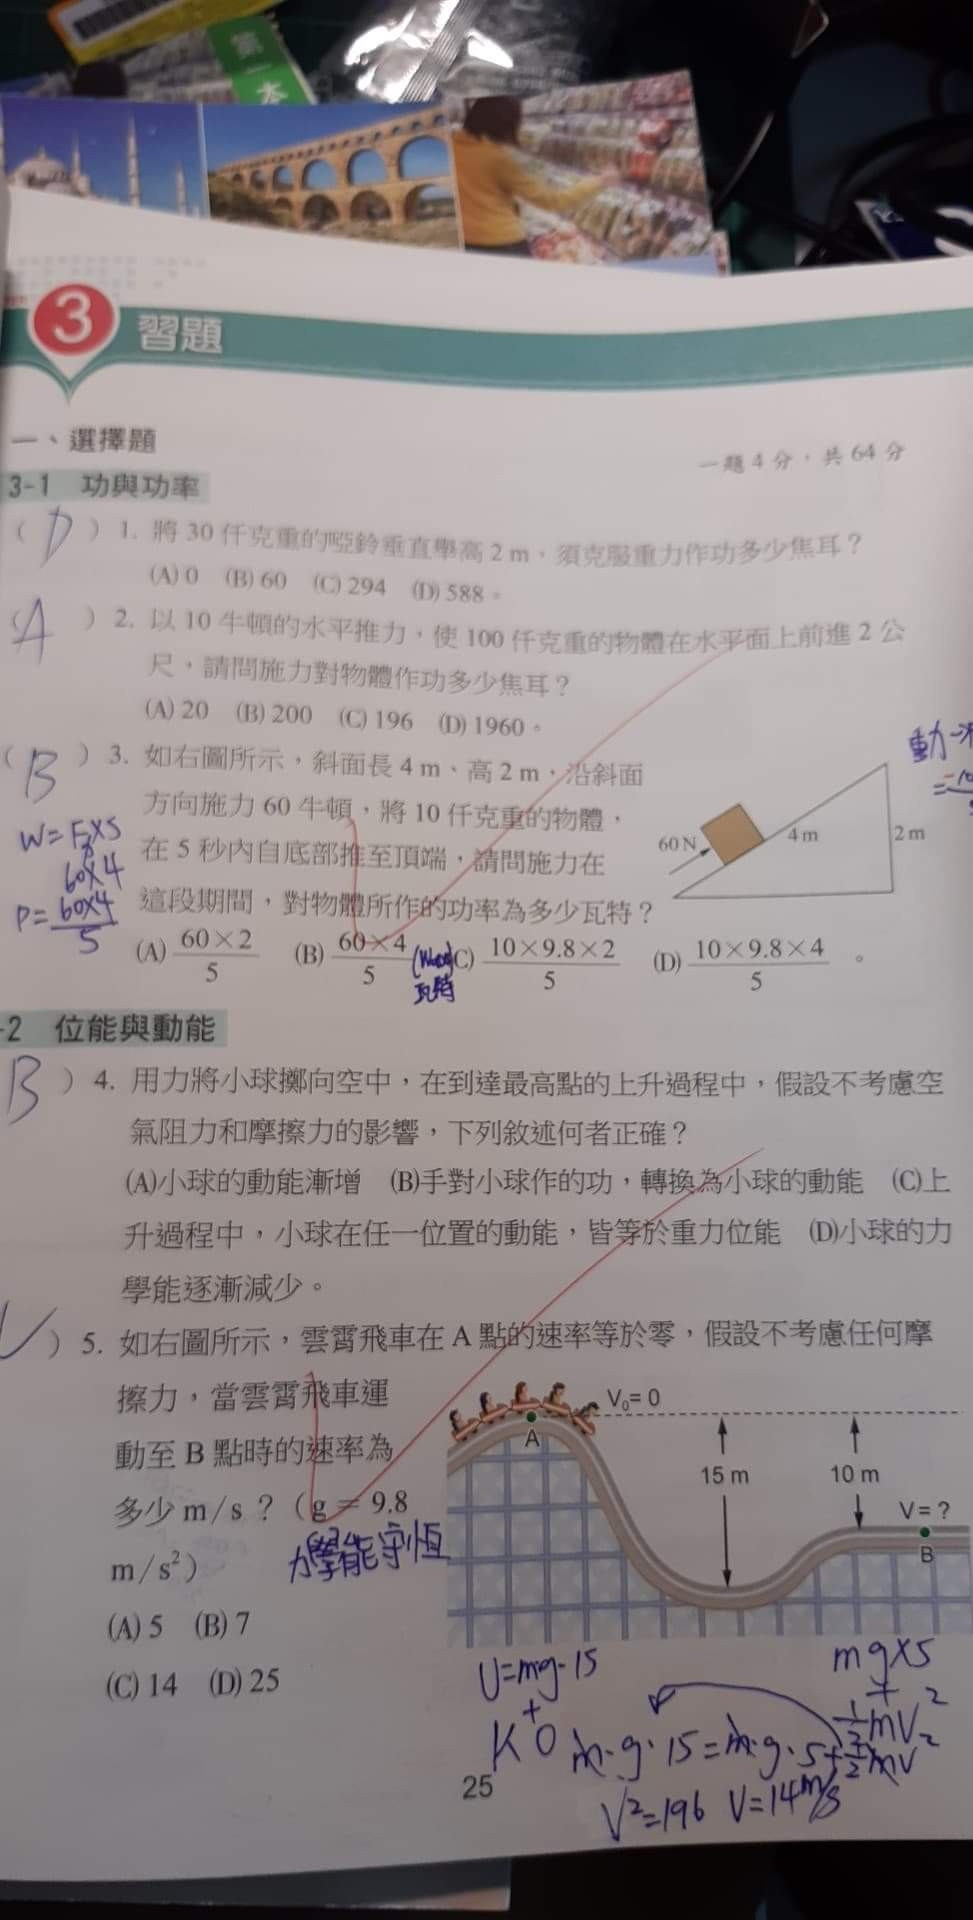 第一本
3 習題
一、選擇題
一題4分，共64分
3-1 功與功率
( D ) 1. 將 30 仟克重的啞鈴垂直舉高 2 m，須克服重力作功多少焦耳？
(A) 0 (B) 60 (C) 294 (D) 588。
( A ) 2. 以 10 牛頓的水平推力，使 100 仟克重的物體在水平面上前進 2 公
尺，請問施力對物體作功多少焦耳？
(A) 20 (B) 200 (C) 196 (D) 1960。
( B ) 3. 如右圖所示，斜面長 4 m、高 2 m，沿斜面
方向施力 60 牛頓，將 10 仟克重的物體，
在 5 秒內自底部推至頂端，請問施力在
這段期間，對物體所作的功率為多少瓦特？
(A) 60×2/5 (B) 60×4/5 (C) 10×9.8×2/5 (D) 10×9.8×4/5。
W=F×S
60×4
P=60×4/5
瓦特
60 N
4 m
2 m
動
-2 位能與動能
B ) 4. 用力將小球擲向空中，在到達最高點的上升過程中，假設不考慮空
氣阻力和摩擦力的影響，下列敘述何者正確？
(A)小球的動能漸增 (B)手對小球作的功，轉換為小球的動能 (C)上
升過程中，小球在任一位置的動能，皆等於重力位能 (D)小球的力
學能逐漸減少。
) 5. 如右圖所示，雲霄飛車在 A 點的速率等於零，假設不考慮任何摩
擦力，當雲霄飛車運
動至 B 點時的速率為
多少 m/s？（g = 9.8
m/s²）
(A) 5 (B) 7
(C) 14 (D) 25
力學能守恆
V₀= 0
A
15 m
10 m
V= ?
B
U=mg·15
+
K 0
mg×5
+
½mV²
m·g·15=m·g·5+½mV²
V²=196 V=14m/s
25